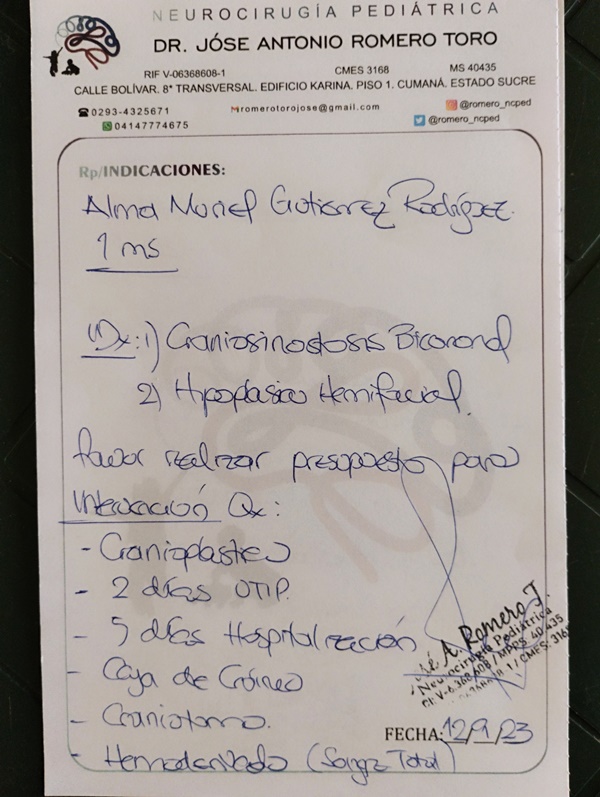 NEUROCIRUGÍA PEDIÁTRICA
DR. JÓSE ANTONIO ROMERO TORO
RIF V-06368608-1 CMES 3168 MS 40435
CALLE BOLÍVAR. 8ª TRANSVERSAL. EDIFICIO KARINA. PISO 1. CUMANÁ. ESTADO SUCRE
0293-4325671 romerotorojose@gmail.com @romero_ncped
04147774675 @romero_ncped
Rp/INDICACIONES:
Alma Muriel Gutierrez Rodríguez.
1 ms
Dx: 1) Craniosinostosis Bicoronal
2) Hipoplasia Hemifacial.
favor realizar presupuesto para
Intervención Qx:
- Cranioplastia
- 2 días UTIP.
- 5 días Hospitalización
- Caja de Cráneo
- Craniotomo.
- Hemoderivado (Sangre Total)
José A. Romero T.
Neurocirugía Pediátrica
CI: V-6.368.608 / MPPS: 40.435
CMES: 3168
FECHA: 12/9/23